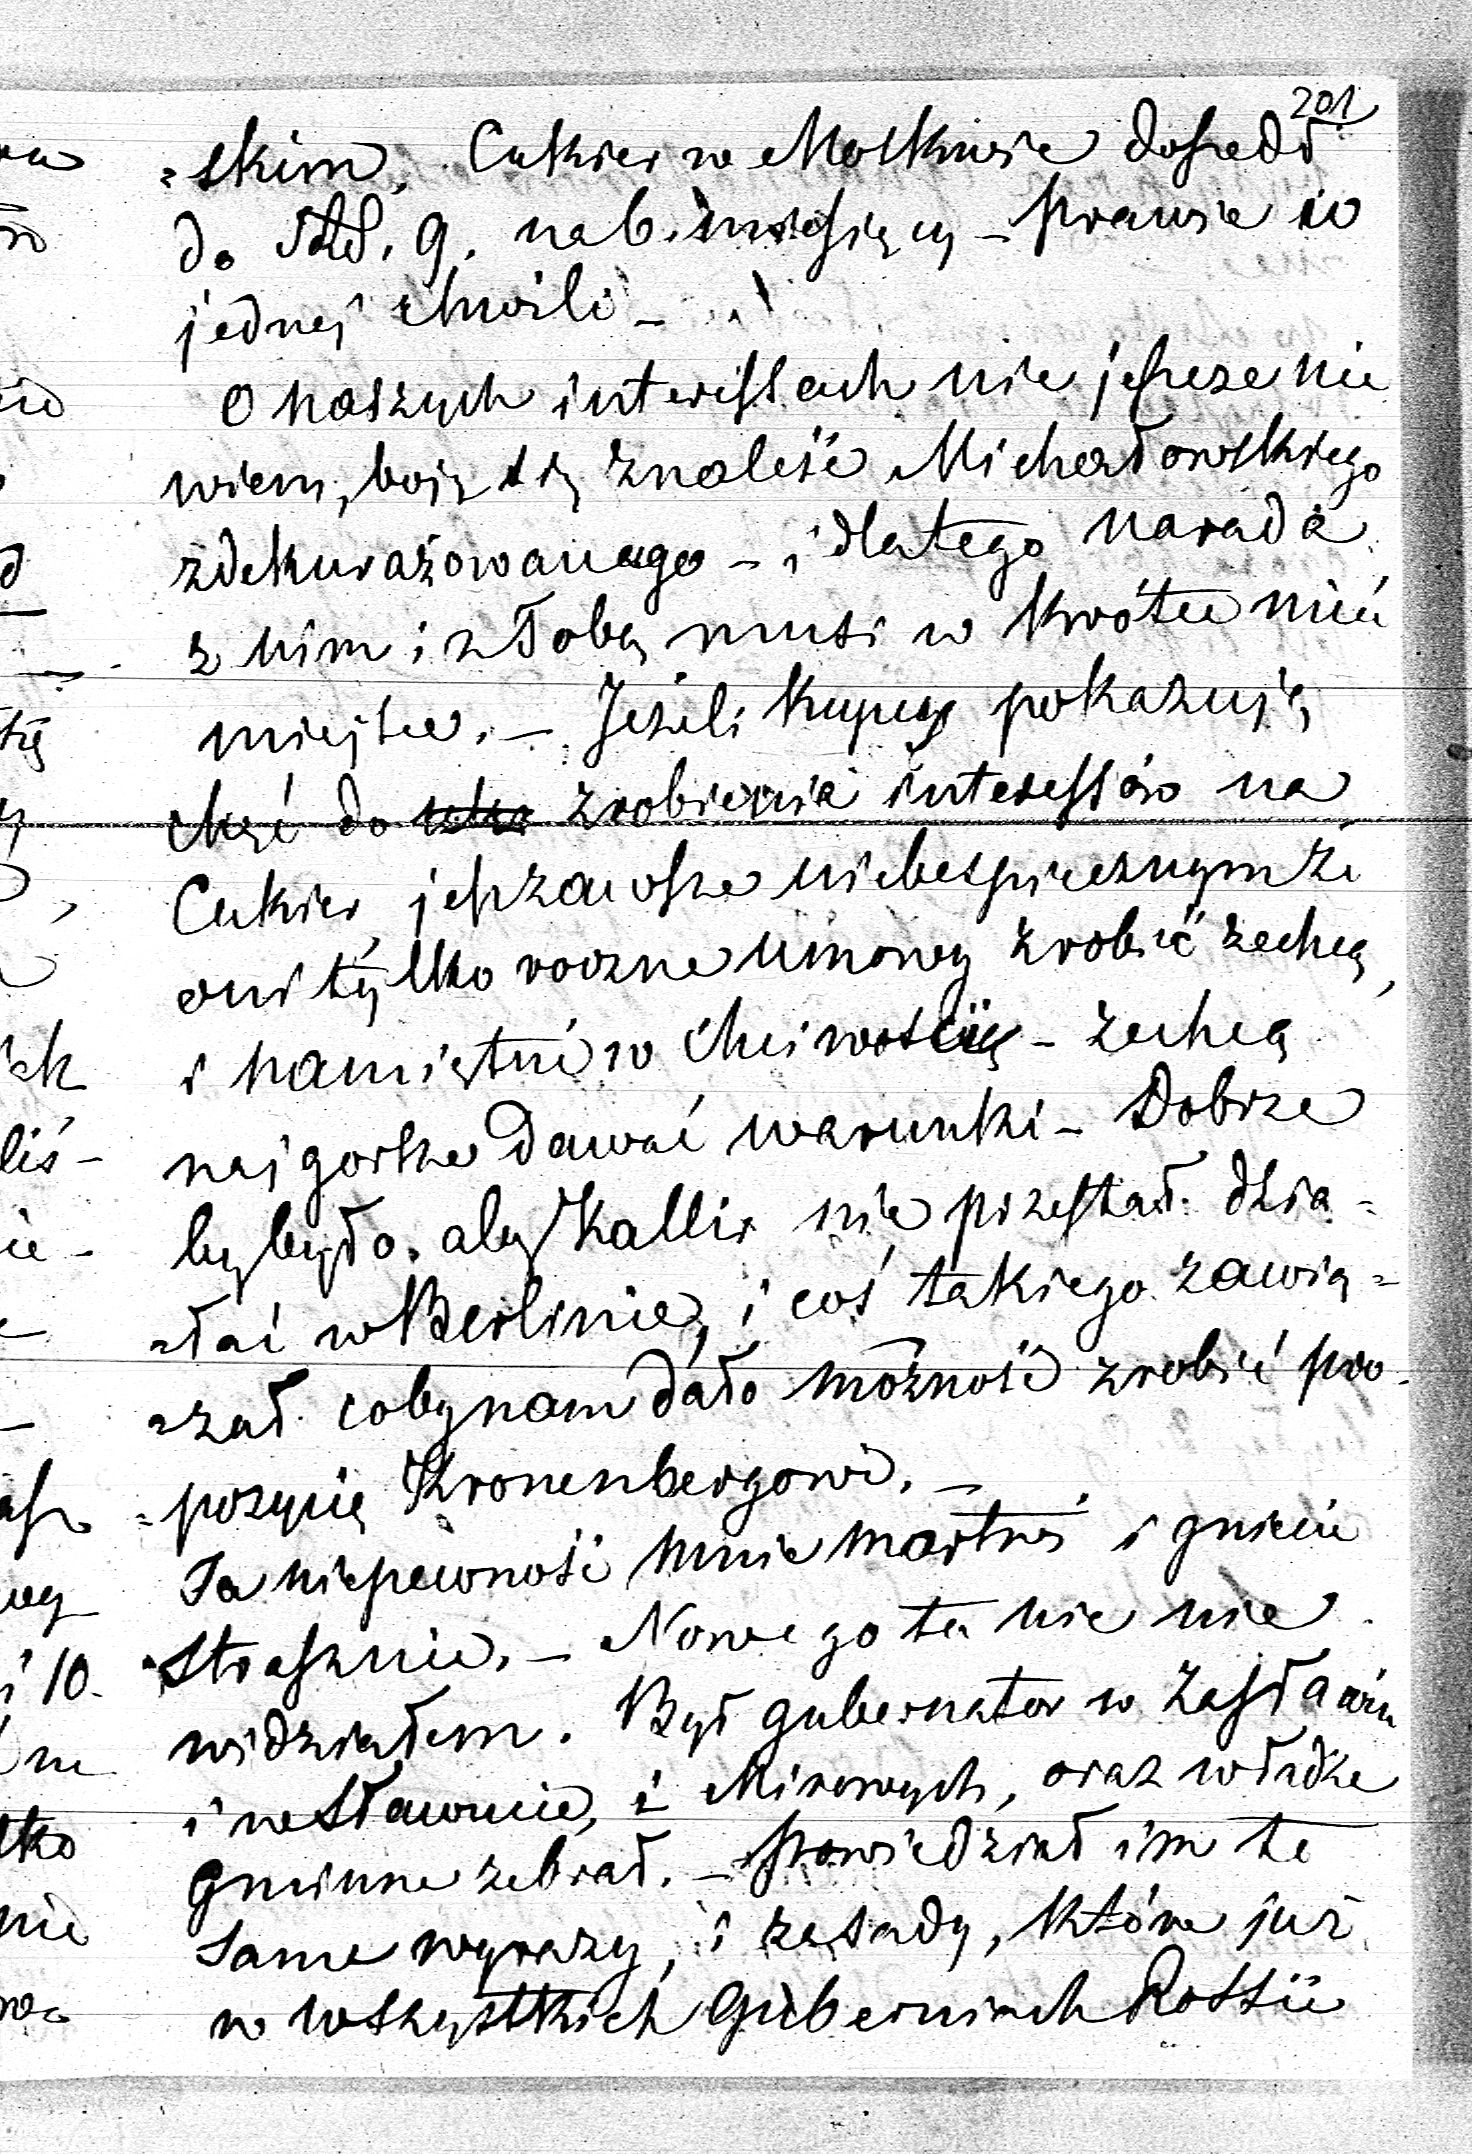 201
=skim. Cukier w Moskwie doszedł
do Rbl. 9. na 6. miesięcy – prawie w
jednej chwili –
O naszych interessach nic jeszcze nie
wiem, boję się znaleść Michałowskiego
zdekurażowanego – i dlatego narada
z nim i z Tobą musi w krótce mieć
miejsce. – Jeżeli kupcy pokazują
chęć do zrobienia interessów na
Cukier, jest zawsze niebespiecznym że
oni tylko roczne umowy zrobić zechcą,
i namiętni w chciwością – zechcą
najgorsze dawać warunki – Dobrze
by było. aby Kallir nie przestał dzia=
=łać w Berlinie, i coś takiego zawią=
=zał coby nam dało możność zrobić pro=
=pozycię Kronenbergowi. –
Ta niepewność mnie martwi i gniecie
strasznie. – Nowego tu nic nie
widziałem. Był gubernator w Zasławiu
i w Sławucie, i Mirowych, oraz władze
gminne zebrał. – Powiedział im te
same wyrazy, i zasady, które już
w wszystkich guberniach Rossii